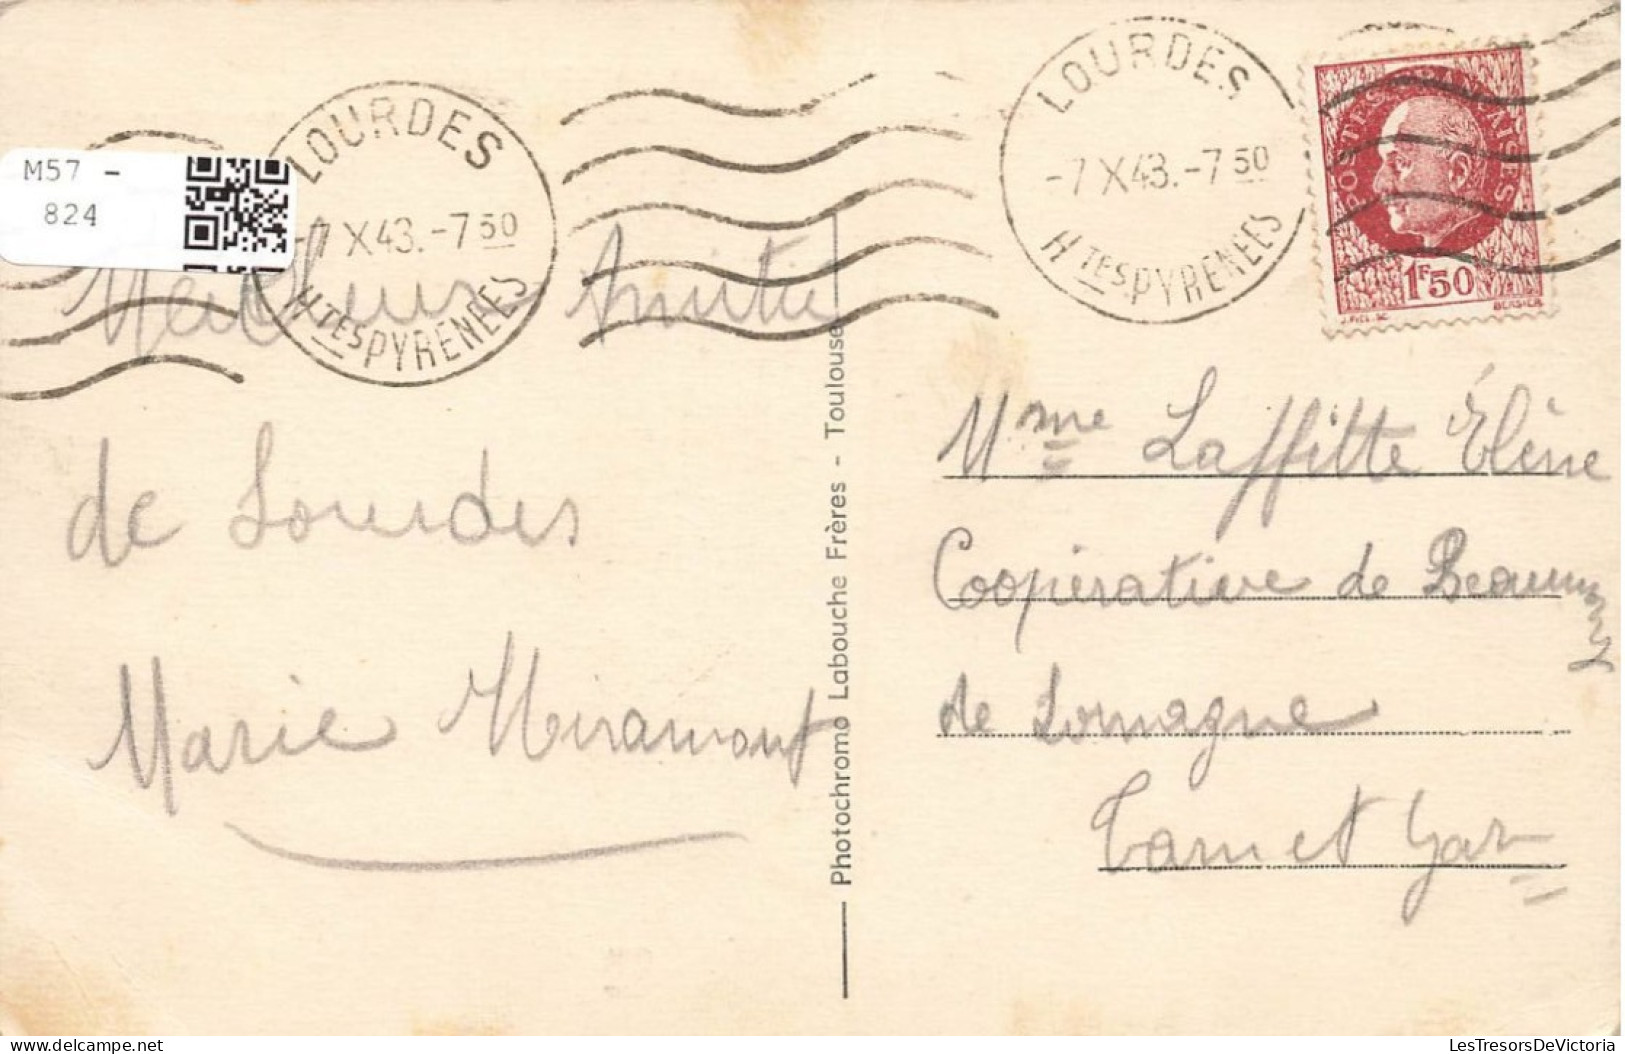 M57 -
824
LOURDES
-7 X 43.-7 50
Htes PYRENEES
LOURDES
-7 X 43.-7 50
Htes PYRENEES
POSTES FRANÇAISES
1F50
J. PIEL. SC.
BERSIER
Meilleur Amitié
de Lourdes
Marie Miramont
Photochromo Labouche Frères - Toulouse
Mme Laffitte Élène
Coopérative de Beaumont
de Lomagne
Tarn et Gar
delcampe.net
LesTresorsDeVictoria